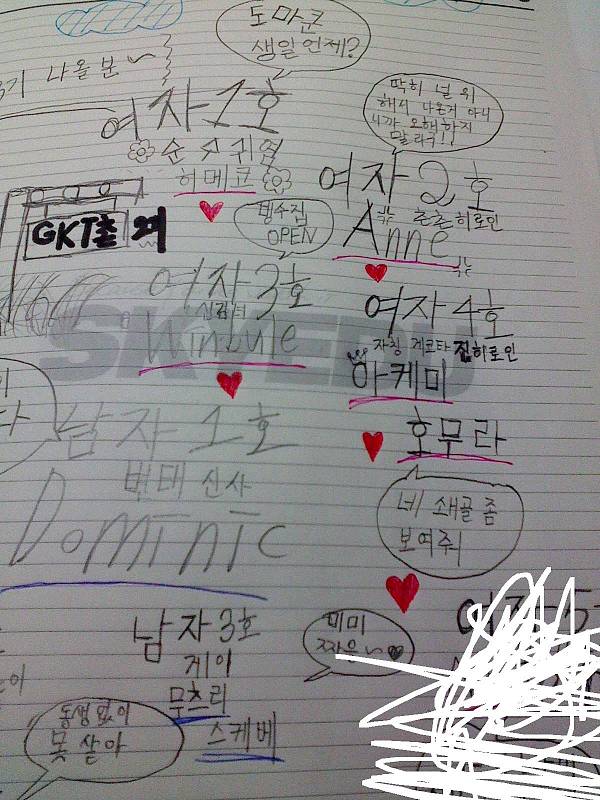 도마군
생일언제?
나올분~
여자1호
순수귀염
히메코
딱히 널 위
해서 나온거 아니
니까 오해하지
말라구!!
여자2호
츤츤히로인
Anne
GKT촌
OPEN
여자3호
여자4호
자칭 게코타 찐히로인
아케미
호무라
SKYEDU
네 쇄골 좀
보여줘
남자1호
변태 신사
Dominic
남자3호
게이
무츠리
스케베
동생없이
못 살아
미미
짜응~